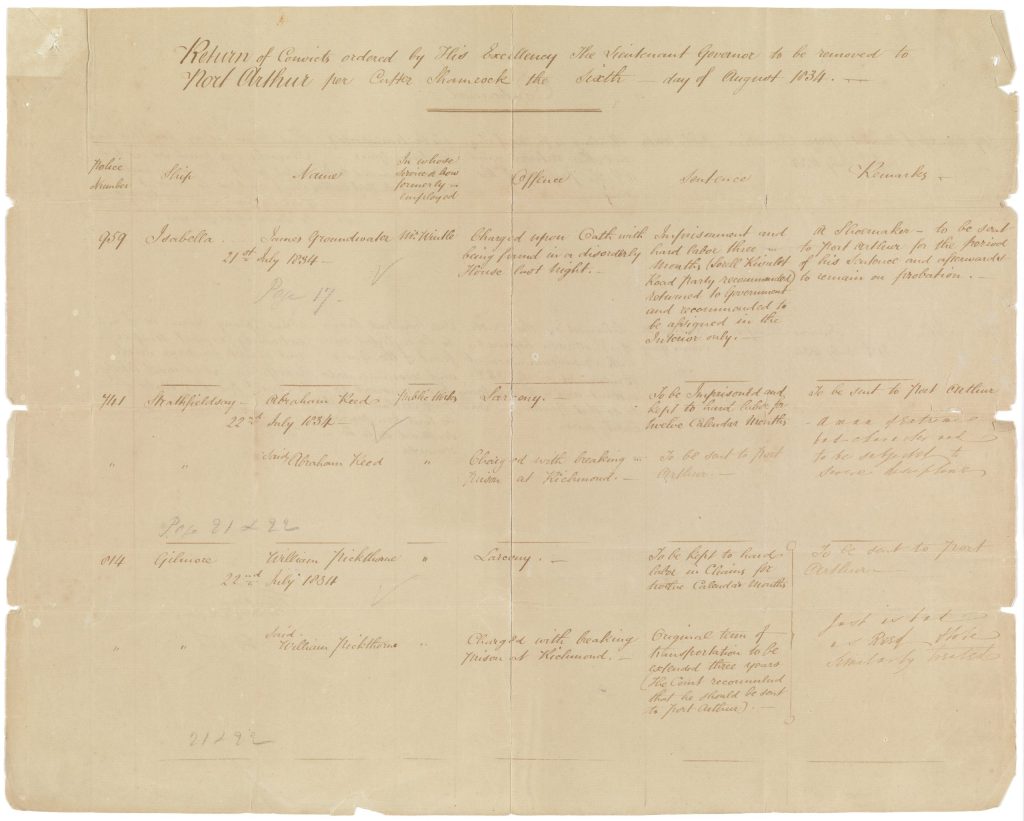 Return of Convicts ordered by His Excellency The Lieutenant Governor to be removed to
Port Arthur per Cutter Shamrock the Sixth day of August 1834. —
Police
Number
Ship
Name
In whose
service & how
formerly
employed
Offence
Sentence
Remarks
959
Isabella
James Groundwater
21st July 1834 —
Mr Wintle
Charged upon Oath with
being found in a disorderly
House last Night. —
Imprisonment and
hard labor three
Months (Sorell Rivulet
Road party recommended)
returned to Government
and recommended to
be assigned in the
Interior only. —
A Shoemaker — to be sent
to Port Arthur for the period
of his Sentence and afterwards
to remain on probation. —
Page 17 —
741
Strathfieldsay —
Abraham Reed
22nd July 1834 —
Public Works
Larceny. —
To be Imprisoned and
kept to hard labor for
twelve Calendar Months
To be sent to Port Arthur
A man of extreme
bad character and
to be subjected to
severe discipline
"
"
Said
Abraham Reed
"
Charged with breaking
prison at Richmond. —
To be sent to Port
Arthur. —
Page 21 & 22
814
Gilmore
William Pickthorne
22nd July 1834
"
Larceny. —
To be kept to hard
labor in Chains for
twelve Calendar Months
To be sent to Port
Arthur —
"
"
Said
William Pickthorne
"
Charged with breaking
prison at Richmond. —
Original term of
transportation to be
extended three years
(The Court recommend
that he should be sent
to Port Arthur). —
Just as bad
as Reed
similarly treated
21 & 22